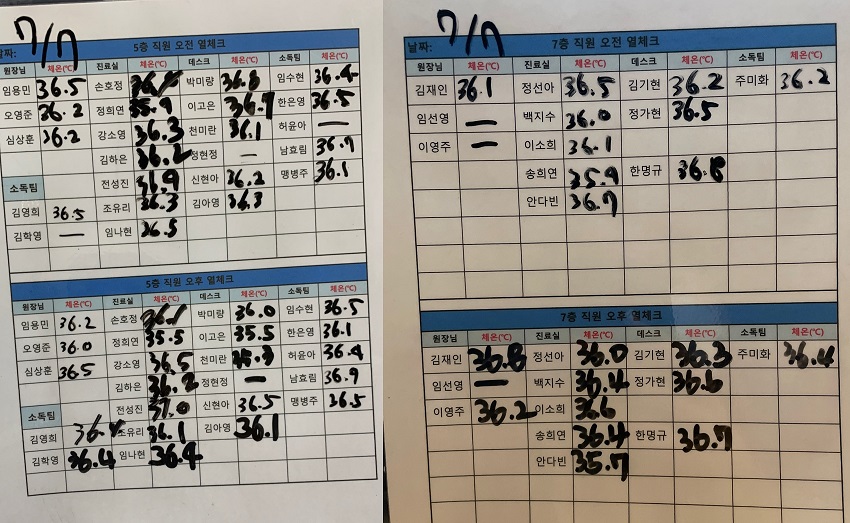 날짜: 7/7
5층 직원 오전 열체크
원장님 체온(℃) 진료실 체온(℃) 데스크 체온(℃) 소독팀 체온(℃)
임용민 36.5 손호정 박미량 36.8 임수현 36.4
오영준 36.2 정희연 35.9 이고은 36.7 한은영 36.5
심상훈 36.2 강소영 36.3 천미란 36.1 허윤아 —
김하은 36.2 정현정 — 남효림 36.9
소독팀 전성진 신현아 36.2 맹병주 36.1
김영희 36.5 조유리 36.3 김아영 36.3
김학영 — 임나현 36.5
5층 직원 오후 열체크
원장님 체온(℃) 진료실 체온(℃) 데스크 체온(℃) 소독팀 체온(℃)
임용민 36.2 손호정 36.1 박미량 36.0 임수현 36.5
오영준 36.0 정희연 35.5 이고은 35.5 한은영 36.1
심상훈 36.5 강소영 36.5 천미란 허윤아 36.4
김하은 36.2 정현정 — 남효림 36.9
소독팀 전성진 37.0 신현아 36.5 맹병주 36.5
김영희 조유리 36.1 김아영 36.1
김학영 36.4 임나현 36.4
날짜: 7/7
7층 직원 오전 열체크
원장님 체온(℃) 진료실 체온(℃) 데스크 체온(℃) 소독팀 체온(℃)
김재인 36.1 정선아 36.5 김기현 36.2 주미화 36.2
임선영 — 백지수 36.0 정가현 36.5
이영주 — 이소희 36.1
송희연 35.9 한명규 36.8
안다빈 36.7
7층 직원 오후 열체크
원장님 체온(℃) 진료실 체온(℃) 데스크 체온(℃) 소독팀 체온(℃)
김재인 36.8 정선아 36.0 김기현 36.3 주미화 36.4
임선영 — 백지수 36.4 정가현 36.6
이영주 36.2 이소희 36.6
송희연 36.4 한명규 36.7
안다빈 35.7